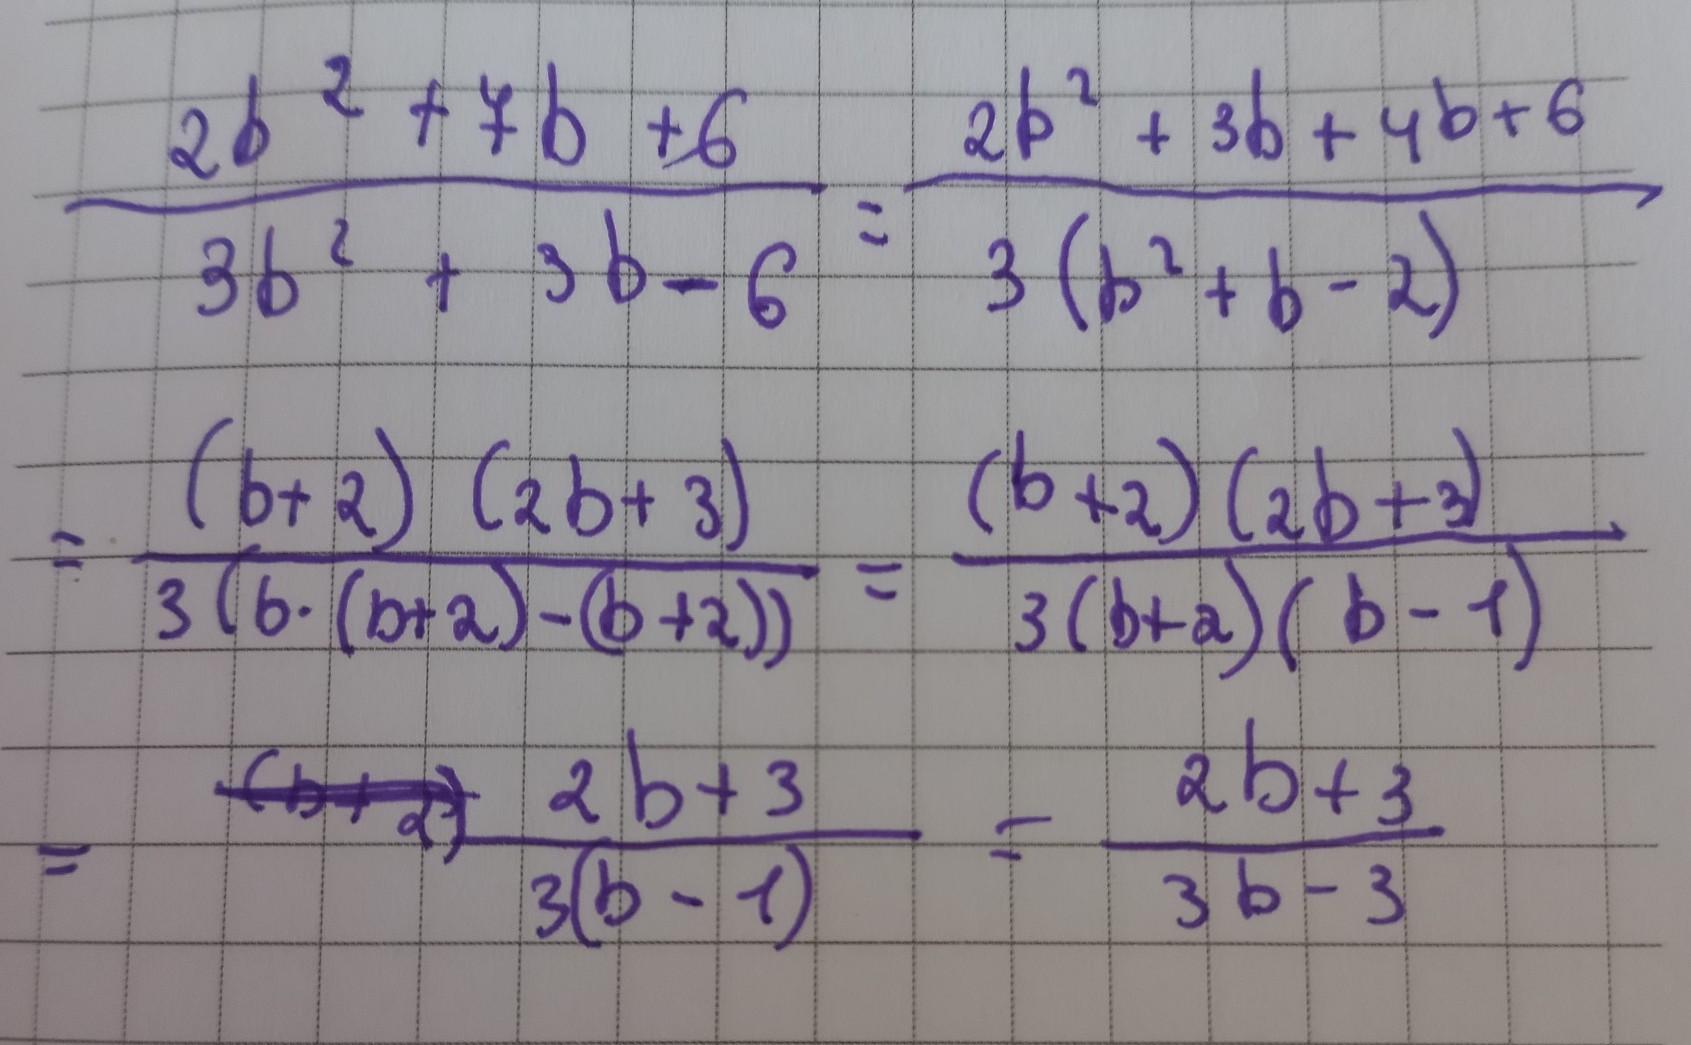 (2b² + 7b + 6)/(3b² + 3b - 6) = (2b² + 3b + 4b + 6)/(3(b² + b - 2))
= ((b+2) (2b+3))/(3(b·(b+2)-(b+2))) = ((b+2)(2b+3))/(3(b+2)(b-1))
= (2b+3)/(3(b-1)) = (2b+3)/(3b-3)